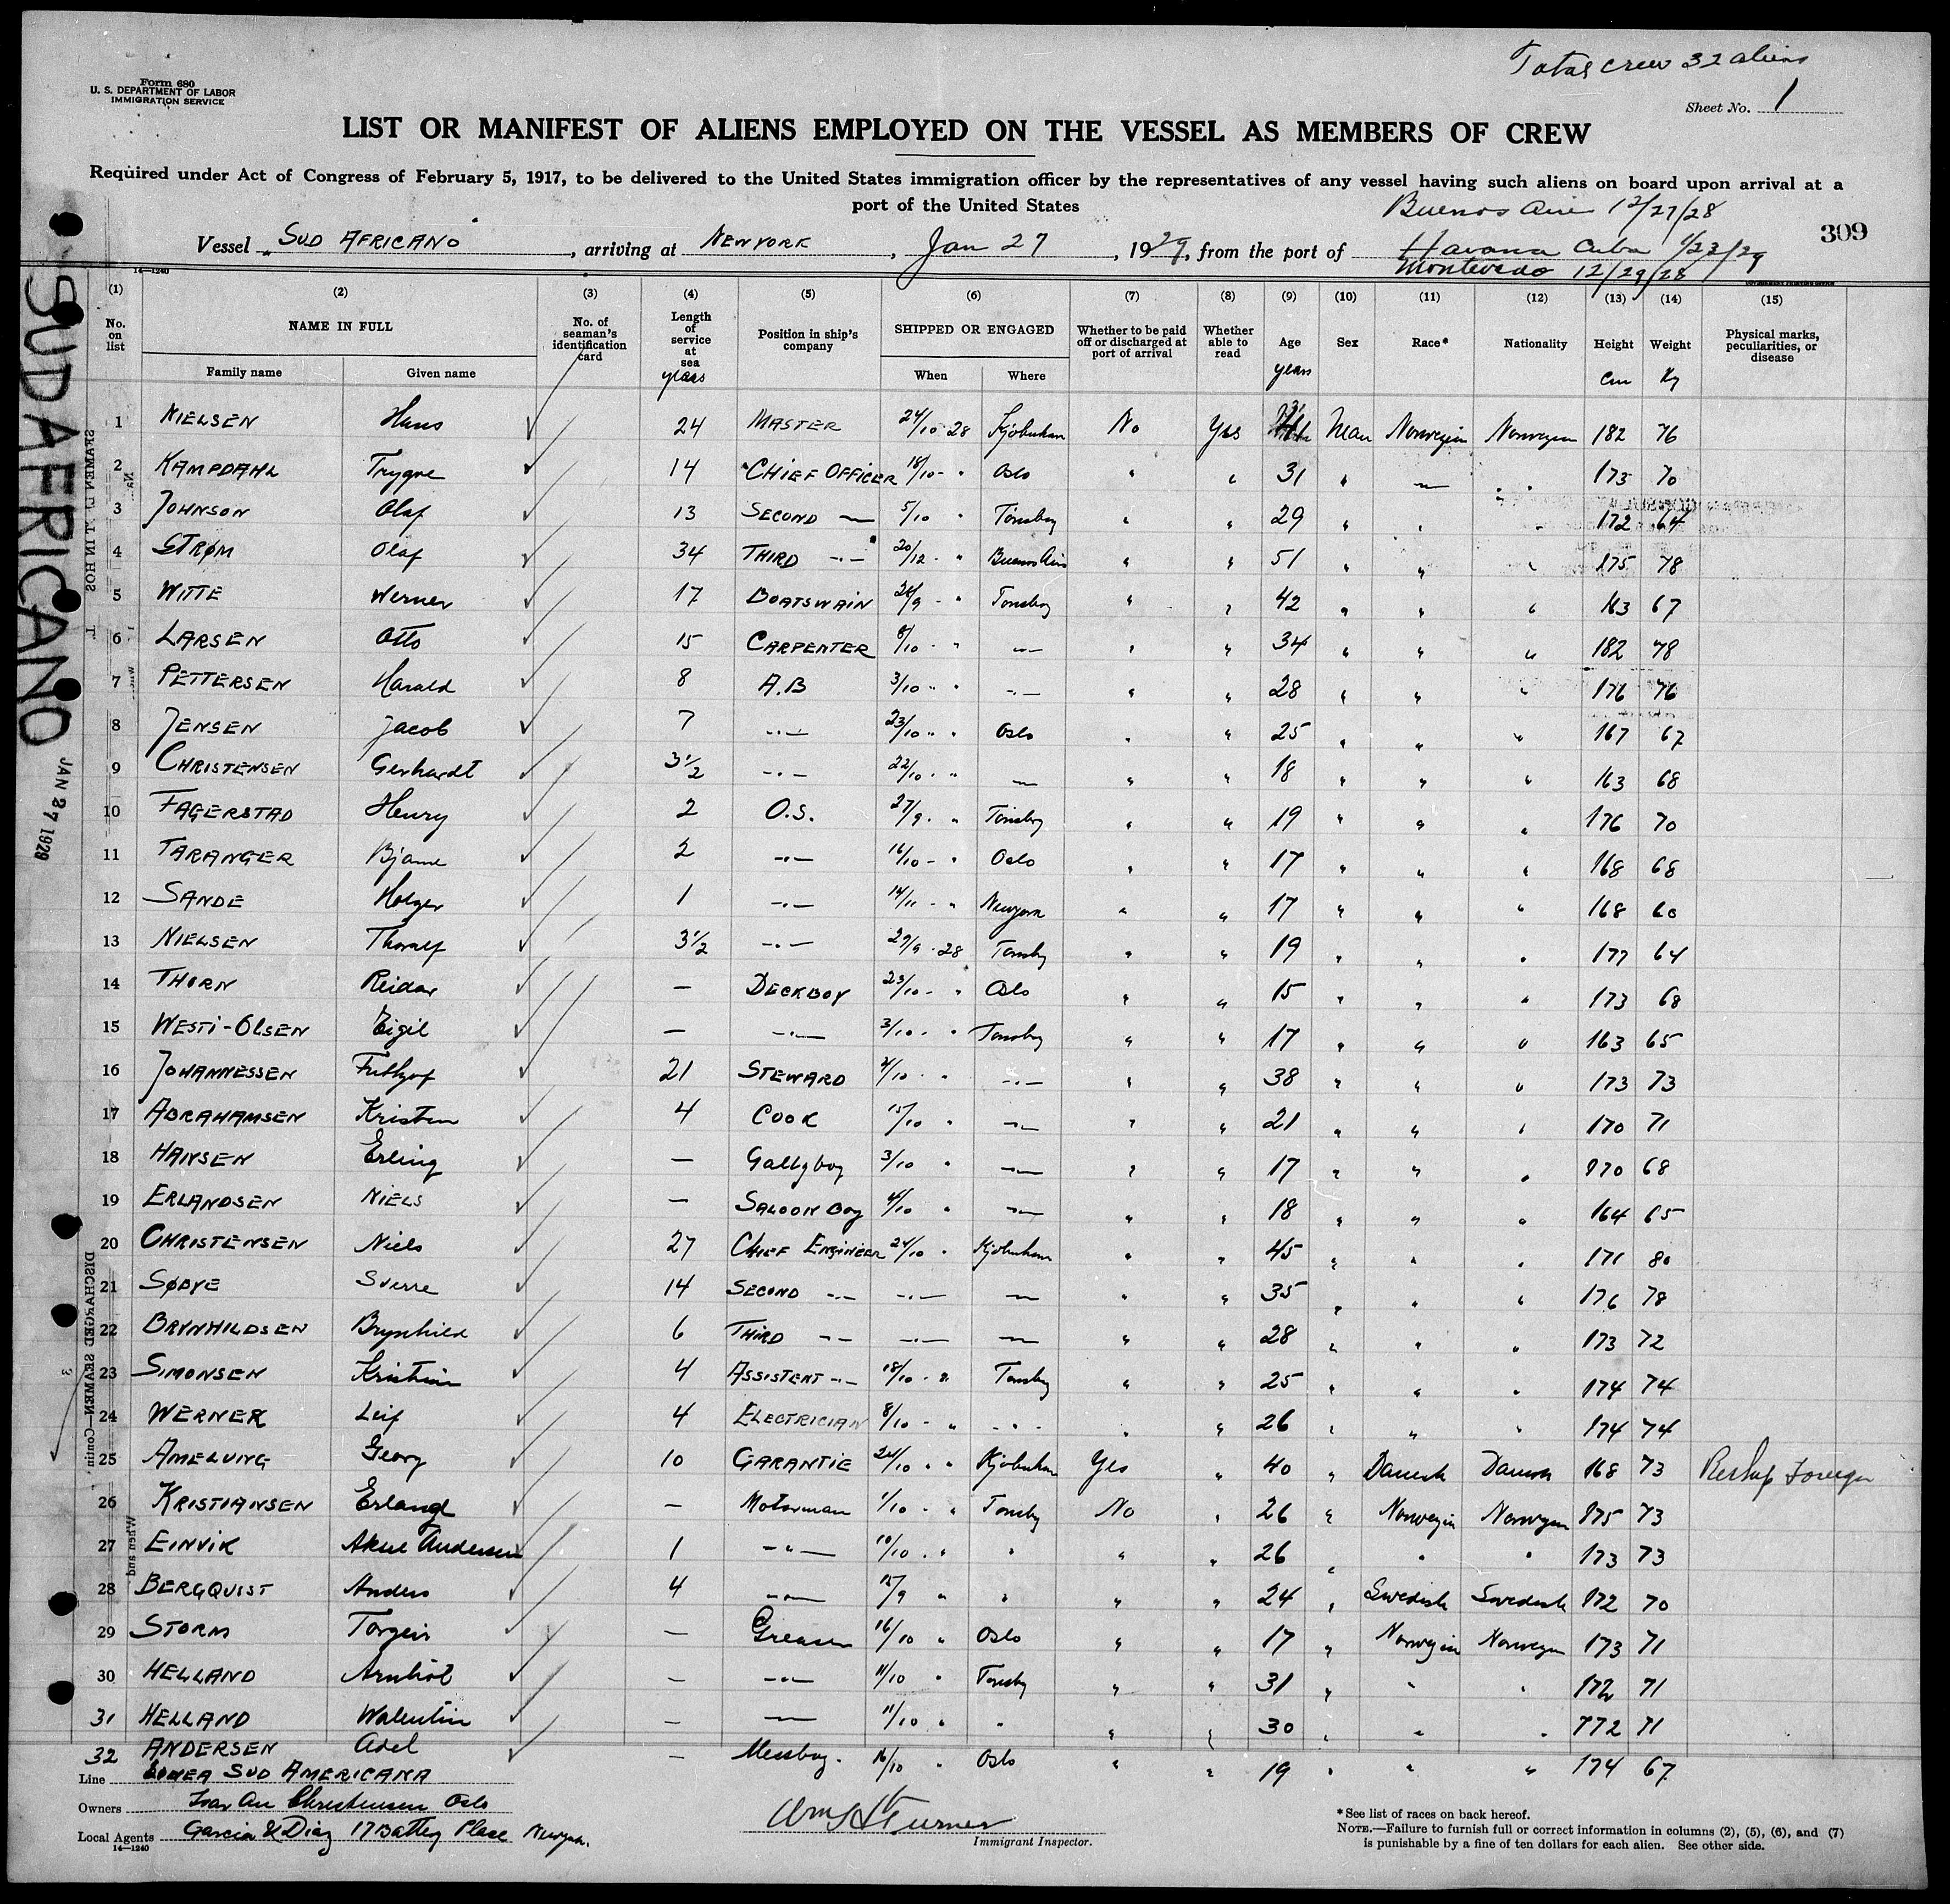 Total crew 32 aliens
Form 680
U. S. DEPARTMENT OF LABOR
IMMIGRATION SERVICE
Sheet No. 1
LIST OR MANIFEST OF ALIENS EMPLOYED ON THE VESSEL AS MEMBERS OF CREW
Required under Act of Congress of February 5, 1917, to be delivered to the United States immigration officer by the representatives of any vessel having such aliens on board upon arrival at a
port of the United States
Buenos Aires 12/27/28
309
Vessel SUD AFRICANO, arriving at NEWYORK, Jan 27, 1929, from the port of Havana Cuba 1/23/29
Montevedo 12/29/28
14—1240
(1) (2) (3) (4) (5) (6) (7) (8) (9) (10) (11) (12) (13) (14) (15)
No. on list NAME IN FULL No. of seaman's identification card Length of service at sea years Position in ship's company SHIPPED OR ENGAGED Whether to be paid off or discharged at port of arrival Whether able to read Age years Sex Race* Nationality Height Cm Weight Kg Physical marks, peculiarities, or disease
Family name Given name When Where
1 NIELSEN Hans 24 MASTER 24/10 28 Kjobenhavn No Yes Man Norwegian Norwegian 182 76
2 KAMPDAHL Trygve 14 CHIEF OFFICER 18/10 - " Oslo " " 31 " — " 173 70
3 JOHNSON Olaf 13 SECOND — 5/10 " Tönsberg " " 29 " " " 172 64
4 STRØM Olaf 34 THIRD -·- 20/12 - " Buenos Aires " " 51 " " " 175 78
5 WITTE Werner 17 BOATSWAIN 26/9 - " Tonsberg " " 42 " " " 163 67
6 LARSEN Otto 15 CARPENTER 8/10 - " -·- " " 34 " " " 182 78
7 PETTERSEN Harald 8 A.B 3/10 - " -·- " " 28 " " " 176 76
8 JENSEN Jacob 7 -·- 23/10 - " Oslo " " 25 " " " 167 67
9 CHRISTENSEN Gerhardt 3 1/2 -·- 22/10 - " — " " 18 " " " 163 68
10 FAGERSTAD Henry 2 O.S. 27/9 - " Tönsberg " " 19 " " " 176 70
11 TARANGER Bjarne 2 -·- 16/10 - " Oslo " " 17 " " " 168 68
12 SANDE Holger 1 -·- 14/11 - " Newyork " " 17 " " " 168 60
13 NIELSEN Thoralf 3 1/2 -·- 29/9 - 28 Tonsberg " " 19 " " " 177 64
14 THORN Reidar — DECKBOY 23/10 - " Oslo " " 15 " " " 173 68
15 WESTI-OLSEN Eigil — -·- 3/10 - " Tonsberg " " 17 " " " 163 65
16 JOHANNESSEN Frithjof 21 STEWARD 2/10 - " -·- " " 38 " " " 173 73
17 ABRAHAMSEN Kristen 4 COOK 15/10 " -·- " " 21 " " " 170 71
18 HANSEN Erling — Galleyboy 3/10 " -·- " " 17 " " " 170 68
19 ERLANDSEN NIELS — SALOON Boy 4/10 " -·- " " 18 " " " 164 65
20 CHRISTENSEN Niels 27 CHIEF ENGINEER 24/10 " Kjobenhavn " " 45 " " " 171 80
21 SØBYE Sverre 14 SECOND -·- -·- — " " 35 " " " 176 78
22 BRYNHILDSEN Brynhild 6 THIRD -- -·- — " " 28 " " " 173 72
23 SIMONSEN Kristian 4 ASSISTENT -·- 18/10 - " Tonsberg " " 25 " " " 174 74
24 WERNER Leif 4 ELECTRICIAN 8/10 - " -·- " " 26 " " " 174 74
25 AMELUNG Georg 10 GARANTIE 24/10 " " Kjobenhavn Yes " 40 " Danish Danish 168 73 Reship Foreign
26 KRISTIANSEN Erland — Motorman 1/10 - " Tonsberg No " 26 " Norwegian Norwegian 175 73
27 EINVIK Aksel Andersen 1 -"- 10/10 " " " " " 26 " " " 173 73
28 BERGQUIST Anders 4 -·- 15/9 " " " " 24 " Swedish Swedish 172 70
29 STORM Torgeir — Greaser 16/10 " Oslo " " 17 " Norwegian Norwegian 173 71
30 HELLAND — -·- 11/10 " Tonsberg " " 31 " " " 172 71
31 HELLAND Walentin — — 11/10 " " " " 30 " " " 172 71
32 ANDERSEN Adel — Messboy. 16/10 " Oslo " " 19 " " " 174 67
Line LINEA SUD AMERICANA
Owners Ivar An Christensen Oslo
Local Agents Garcia & Diaz 17 Battery Place Newyork.
14—1240
Wm H Turner
Immigrant Inspector.
*See list of races on back hereof.
NOTE.—Failure to furnish full or correct information in columns (2), (5), (6), and (7)
is punishable by a fine of ten dollars for each alien. See other side.
SUD AFRICANO
JAN 27 1929
DISCHARGED SEAMEN—Contin